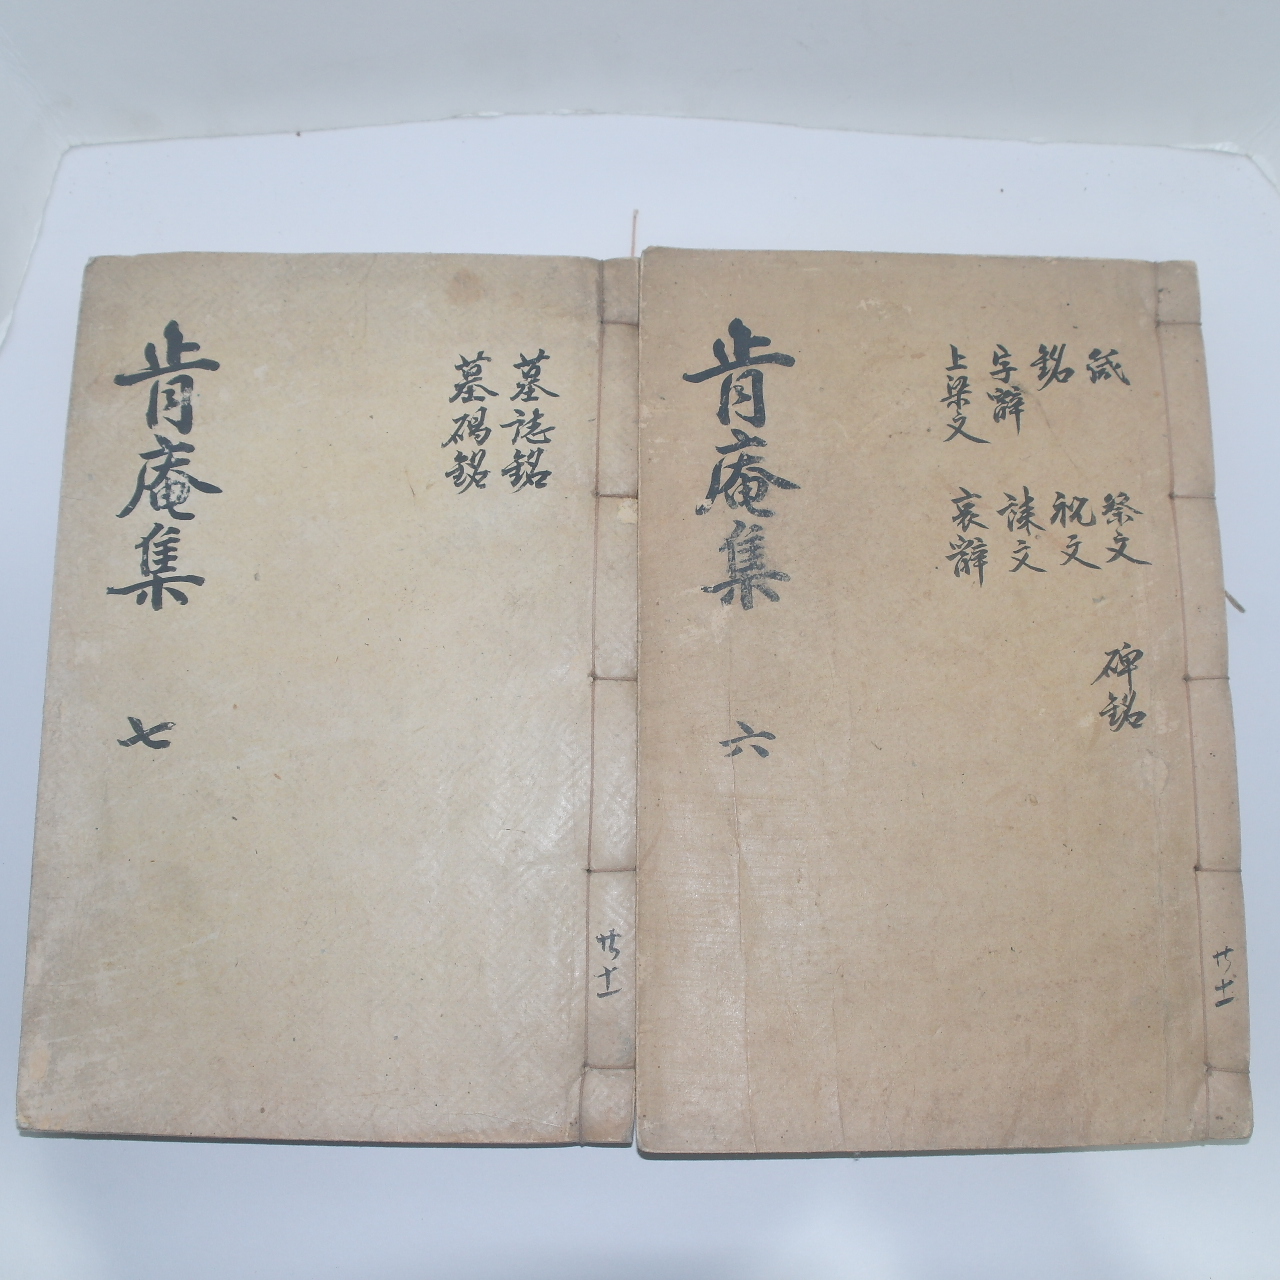 箴
銘
字辭
上梁文
祭文
祝文
誄文
哀辭
碑銘
肯庵集 六
共十一
墓誌銘
墓碣銘
肯庵集 七
共十一